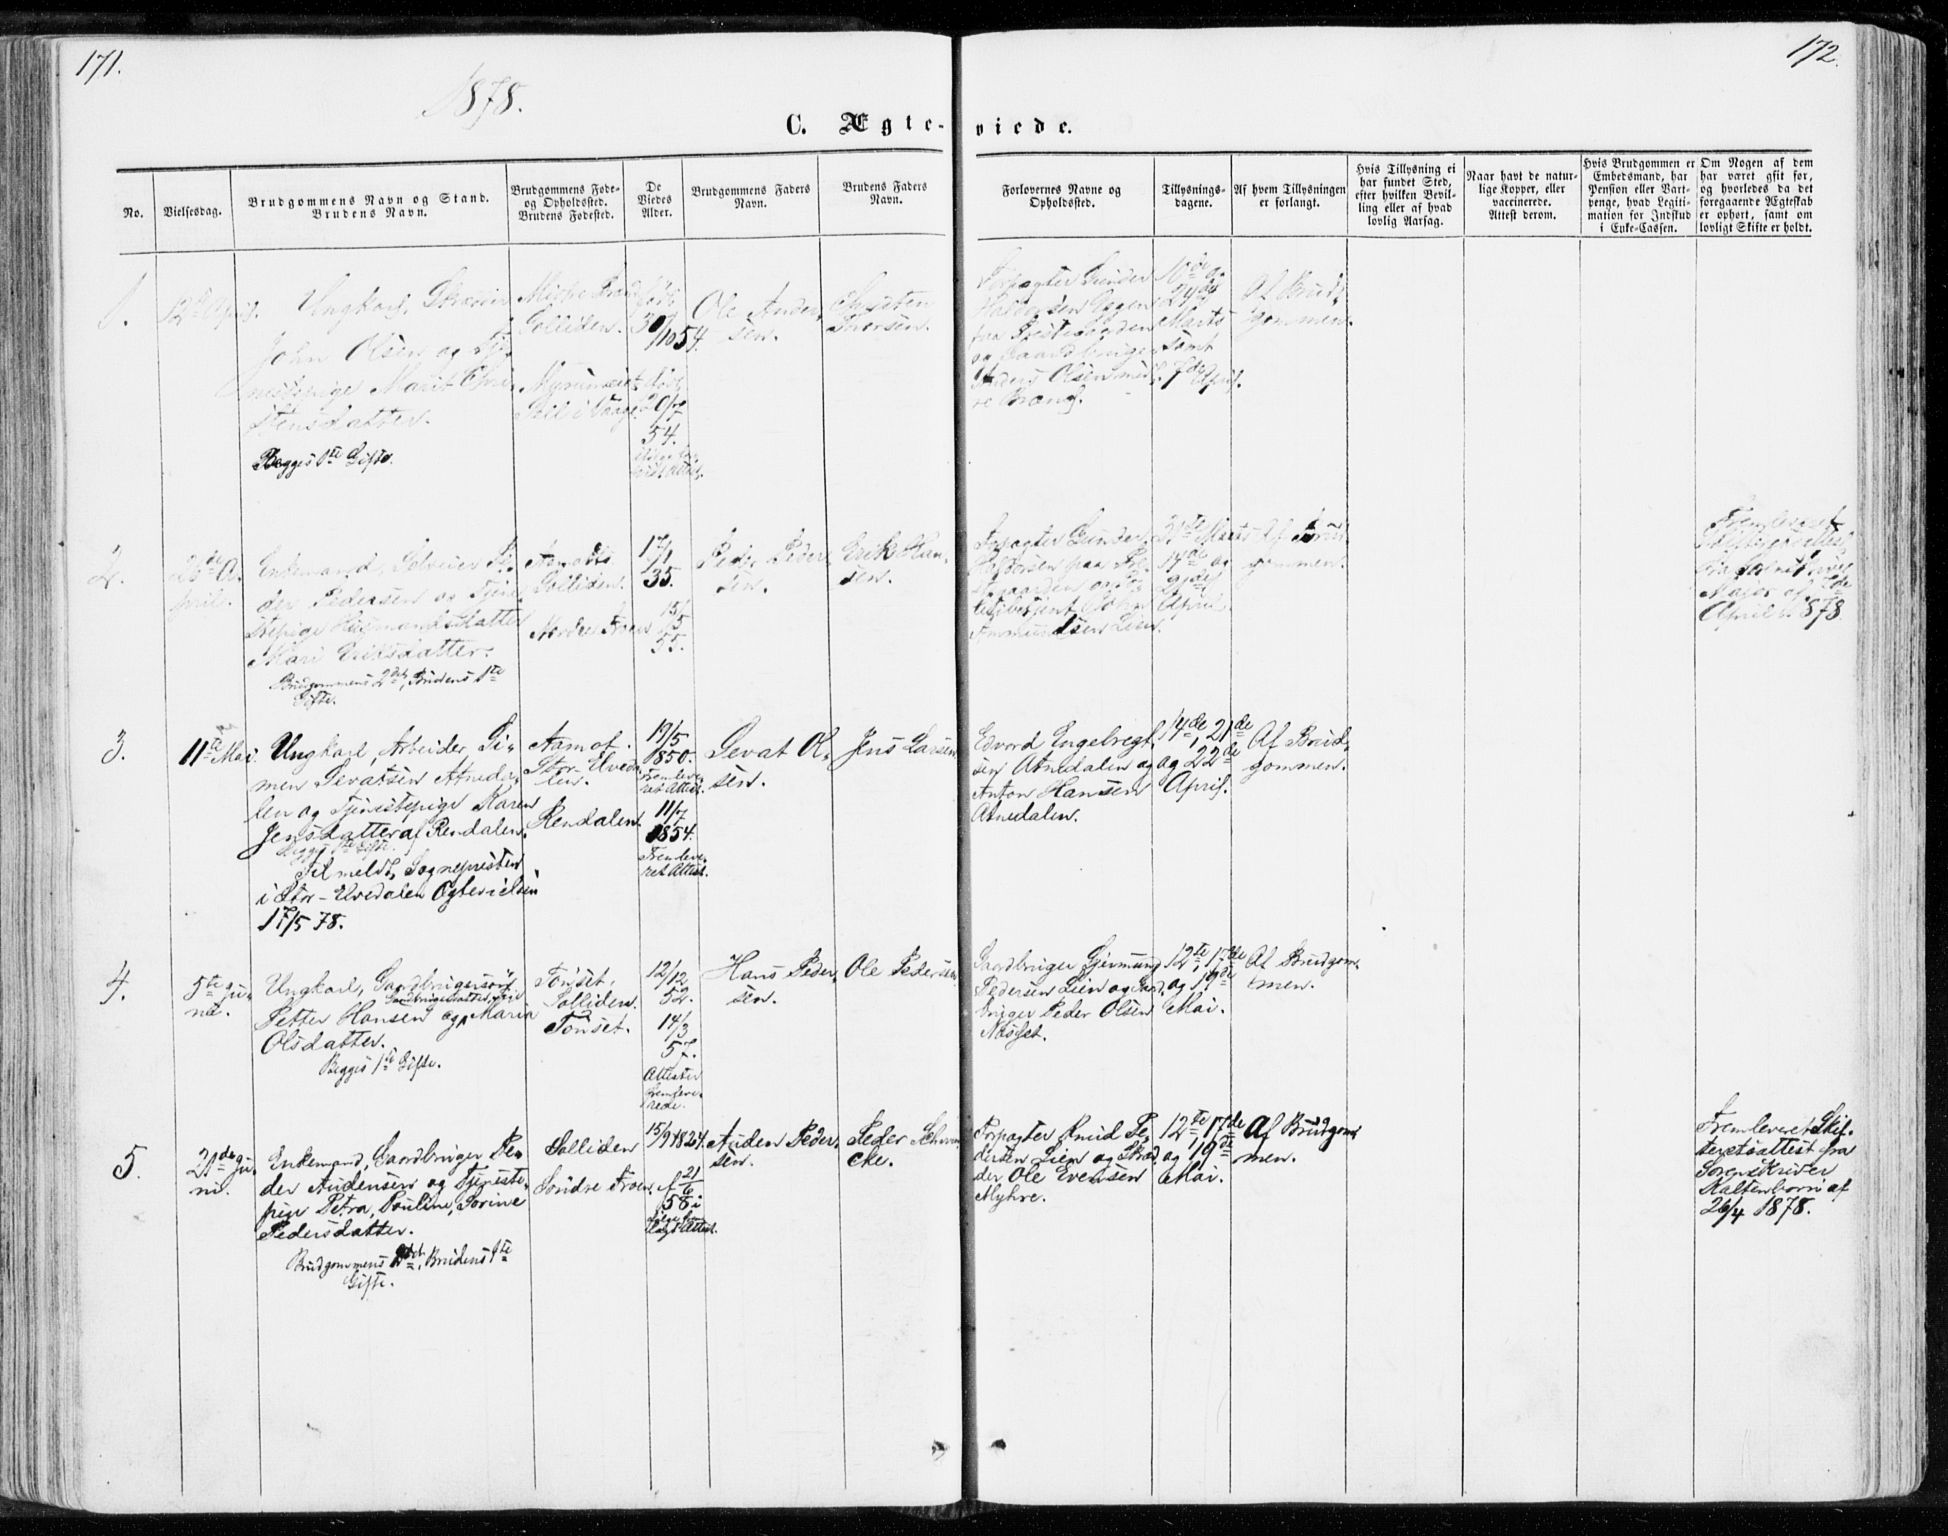 171.
172.
1878.
C. Ægte-viede.
No.
Vielsesdag.
Brudgommens Navn og Stand.
Brudens Navn.
Brudgommens Føde-
og Opholdssted.
Brudens Fødested.
De
Viedes
Alder.
Brudgommens Faders
Navn.
Brudens Faders
Navn.
Forlovernes Navne og
Opholdssted.
Tillysnings-
dagene.
Af hvem Tillysningen
er forlangt.
Hvis Tillysning ei
har fundet Sted,
efter hvilken Bevil-
ling eller af hvad
lovlig Aarsag.
Naar havt de natur-
lige Kopper, eller
vaccinerede.
Attest derom.
Hvis Brudgommen er
Embedsmand, har
Pension eller Vart-
penge, hvad Legiti-
mation for Indskud
i Enke-Cassen.
Om Nogen af dem
har været gift før,
og hvorledes da det
foregaaende Ægteskab
er ophørt, samt om
lovligt Skifte er holdt.
1.
12te April.
Ungkarl,
John Olsen og Tje-
nestepige Marit Chri-
stensdatter.
Begges 1ste Gifte.
Solliden.
30/10 54.
20/7
54.
Ole Ander-
sen.
Christen
Iversen.
Forpagter Gunder
Haldorsen
paa Prestegaarden
og Gaardbruger
Anders Olsen
10de og
24de
Marts
samt
7de April.
Af Brud-
gommen.
2.
April.
Enkemand, Pe-
der Pedersen og Tjene-
stepige Husmandsdatter
Mari Eriksdatter.
Brudgommens 2det, Brudens 1ste
Gifte.
Solliden.
Nordre Froen
17/1
35.
15/5
55.
Peder Peder-
sen.
Erik Han-
sen.
Forpagter Gunder
Haldorsen paa Pre-
stegaarden og
John
Ammundsen Lien.
31te Marts
14de og
22de
April.
Af Brud-
gommen.
Fremleveret
April 1878.
3.
11te Mai.
Ungkarl, Arbeider, Si-
men Sevatsen Atneda-
len og Tjenestepige Karen
Jensdatter af Rendalen.
Begges 1ste Gifte.
Tilmeldt, Sognepresten
i Stor-Elvedalen Ægtevielsen
17/5 78.
Aamot.
Stor-Elveda-
len.
Rendalen.
19/5
1850.
Fremleve-
ret Attest.
11/7
1854.
Fremleve-
ret Attest.
Sevat Ol-
sen.
Jens Larsen
Edvard Engelbregt-
sen Atnedalen og
Anton Hansen
Atnedalen.
14de, 21de
og 22de
April.
Af Brud-
gommen.
4.
5te Ju-
ni.
Ungkarl, Gaardbrugersøn
Petter Hansen og Maria
Olsdatter.
Begges 1ste Gifte.
Tönset.
Solliden.
Tönset.
12/12
52.
14/3
57.
Attester
fremleve-
rede.
Hans Peder-
sen.
Ole Pedersen
Gaardbruger Gjermund
Pedersen Lien og Gaard-
bruger Peder Olsen
12te, 17de
og 19de
Mai.
Af Brudgom-
men.
5.
21de Ju-
ni.
Enkemand, Gaardbruger Pe-
der Audensen og Tjeneste-
pige Petra, Pauline, Sorine
Pedersdatter.
Brudgommens 2det, Brudens 1ste
Gifte.
Solliden
Söndre Froen.
15/9 1824.
21/6
58 i
Auden Peder-
sen.
Peder Schwen-
cke.
Forpagter Knud Pe-
dersen Lien og Skræd-
der Ole Evensen
Myhre.
12te, 17de
og 19de
Mai.
Af Brudgom-
men.
Fremleveret Skif-
teretsattest fra
Sorenskriver
Kaltenborn af
26/4 1878.